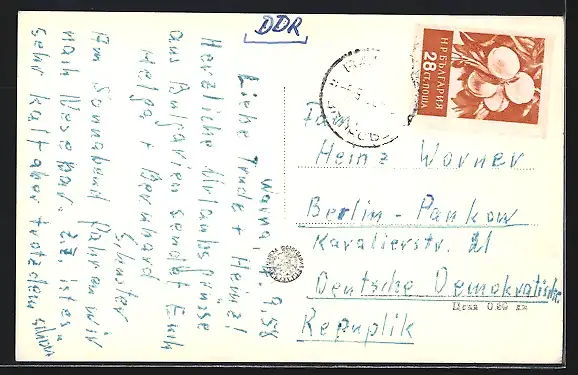 DDR
Н.Р. БЪЛГАРИЯ
28 СТ. ПОЩА
Varna, 9.58
Liebe Trude + Heinz!
Herzliche Urlaubsgrüsse
aus Bulgarien sendet Euch
Helga + Bernhard
Schuster
Am Sonnabend fahren wir
nach Nesebar. z.Z. ist es
sehr kalt aber trotzdem schön
Fam
Heinz Worner
Berlin - Pankow
Kavalierstr. 21
Deutsche Demokratische
Republik
Цена 0.69 лв